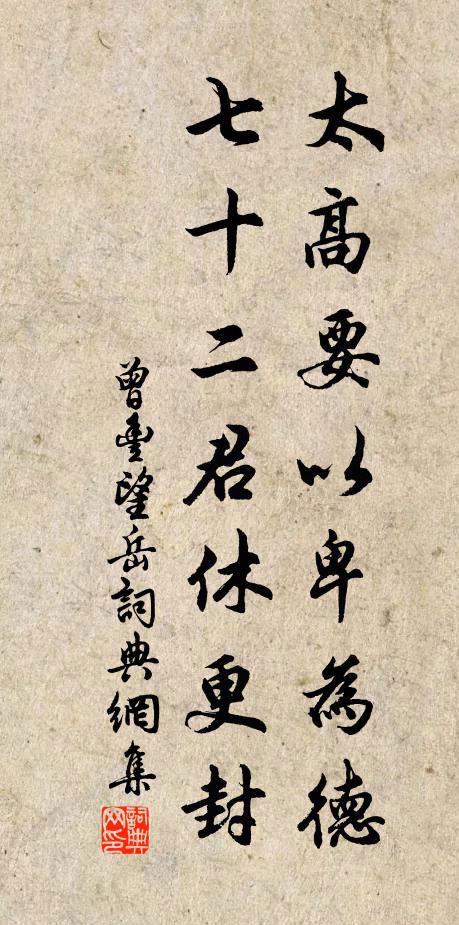 太高要以卑為德
七十二君休更封
曾豊望岳詞典網集
詞典
网印